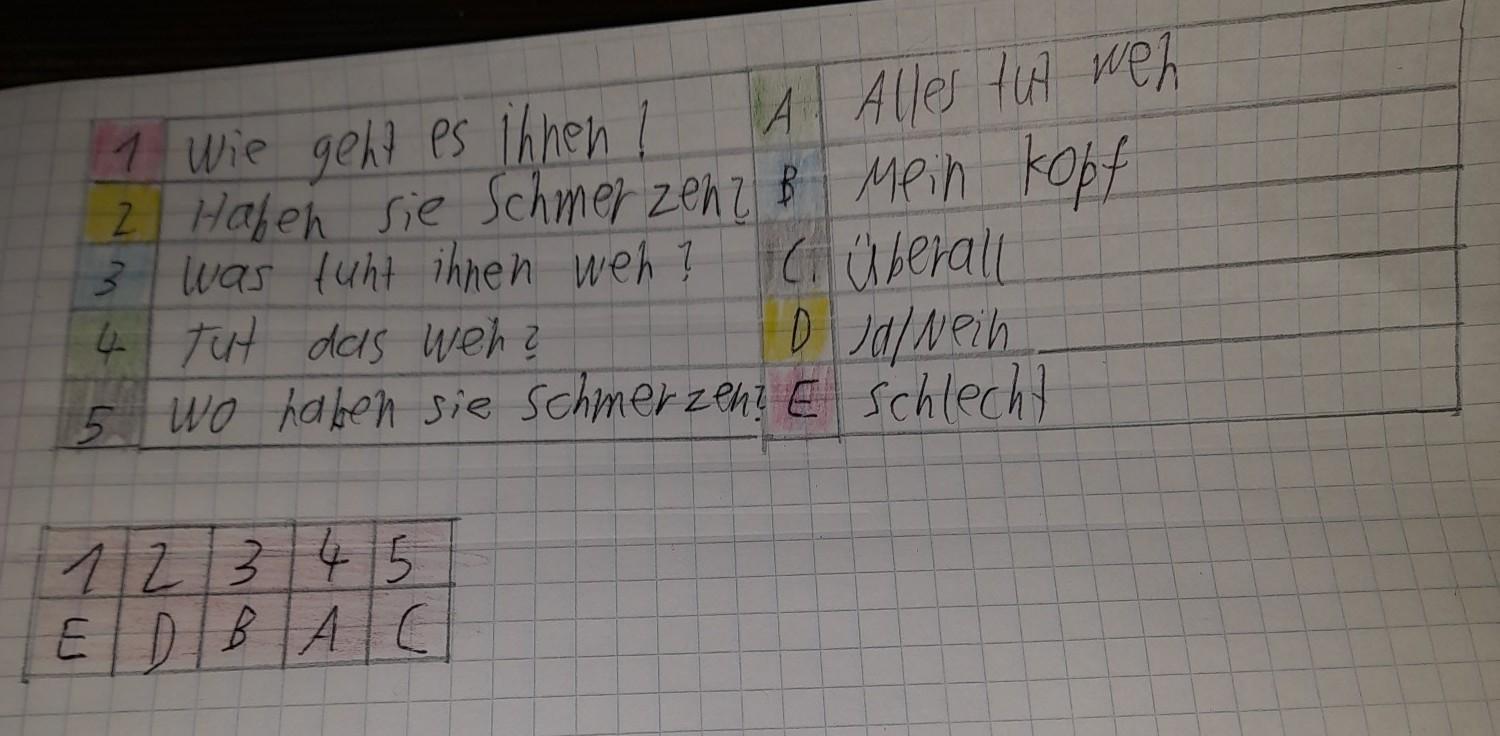 1 Wie geht es ihnen? A Alles tut weh
2 Haben sie Schmerzen? B Mein kopf
3 Was tuht ihnen weh? C Überall
4 Tut das weh? D Ja/Nein
5 Wo haben sie Schmerzen? E schlecht
1 2 3 4 5
E D B A C